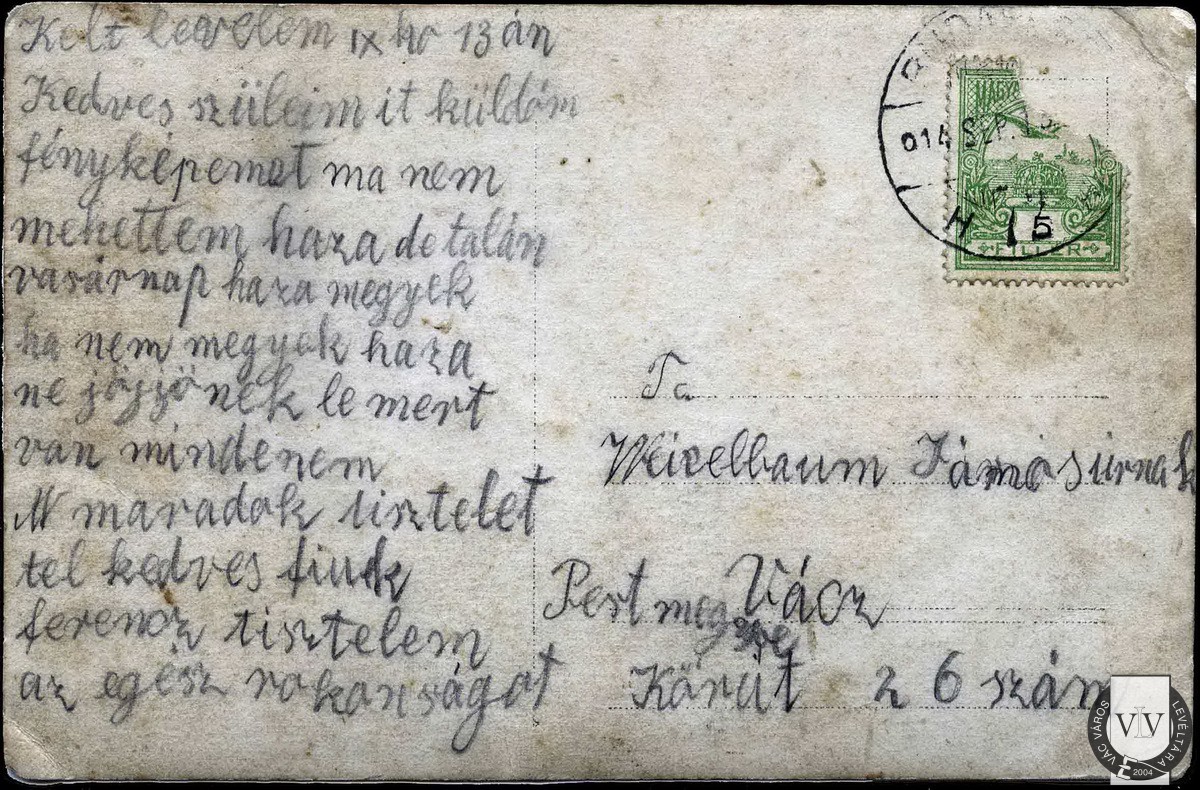 Kelt levelem IX hó 13 án
Kedves szüleim it küldöm
fényképemet ma nem
mehettem haza de talán
vasárnap haza megyek
ha nem megyek haza
ne jöjjönek le mert
van mindenem
M maradok tisztelet
tel kedves fiuk
ferencz tisztelem
az egész rokonságot
914 SZP. 15
H 5
FILLER
Weixelbaum János úrnak
Vácz
Pest megye
Körút 26 szám
VÁC VÁROS LEVÉLTÁRA
VLV
2004